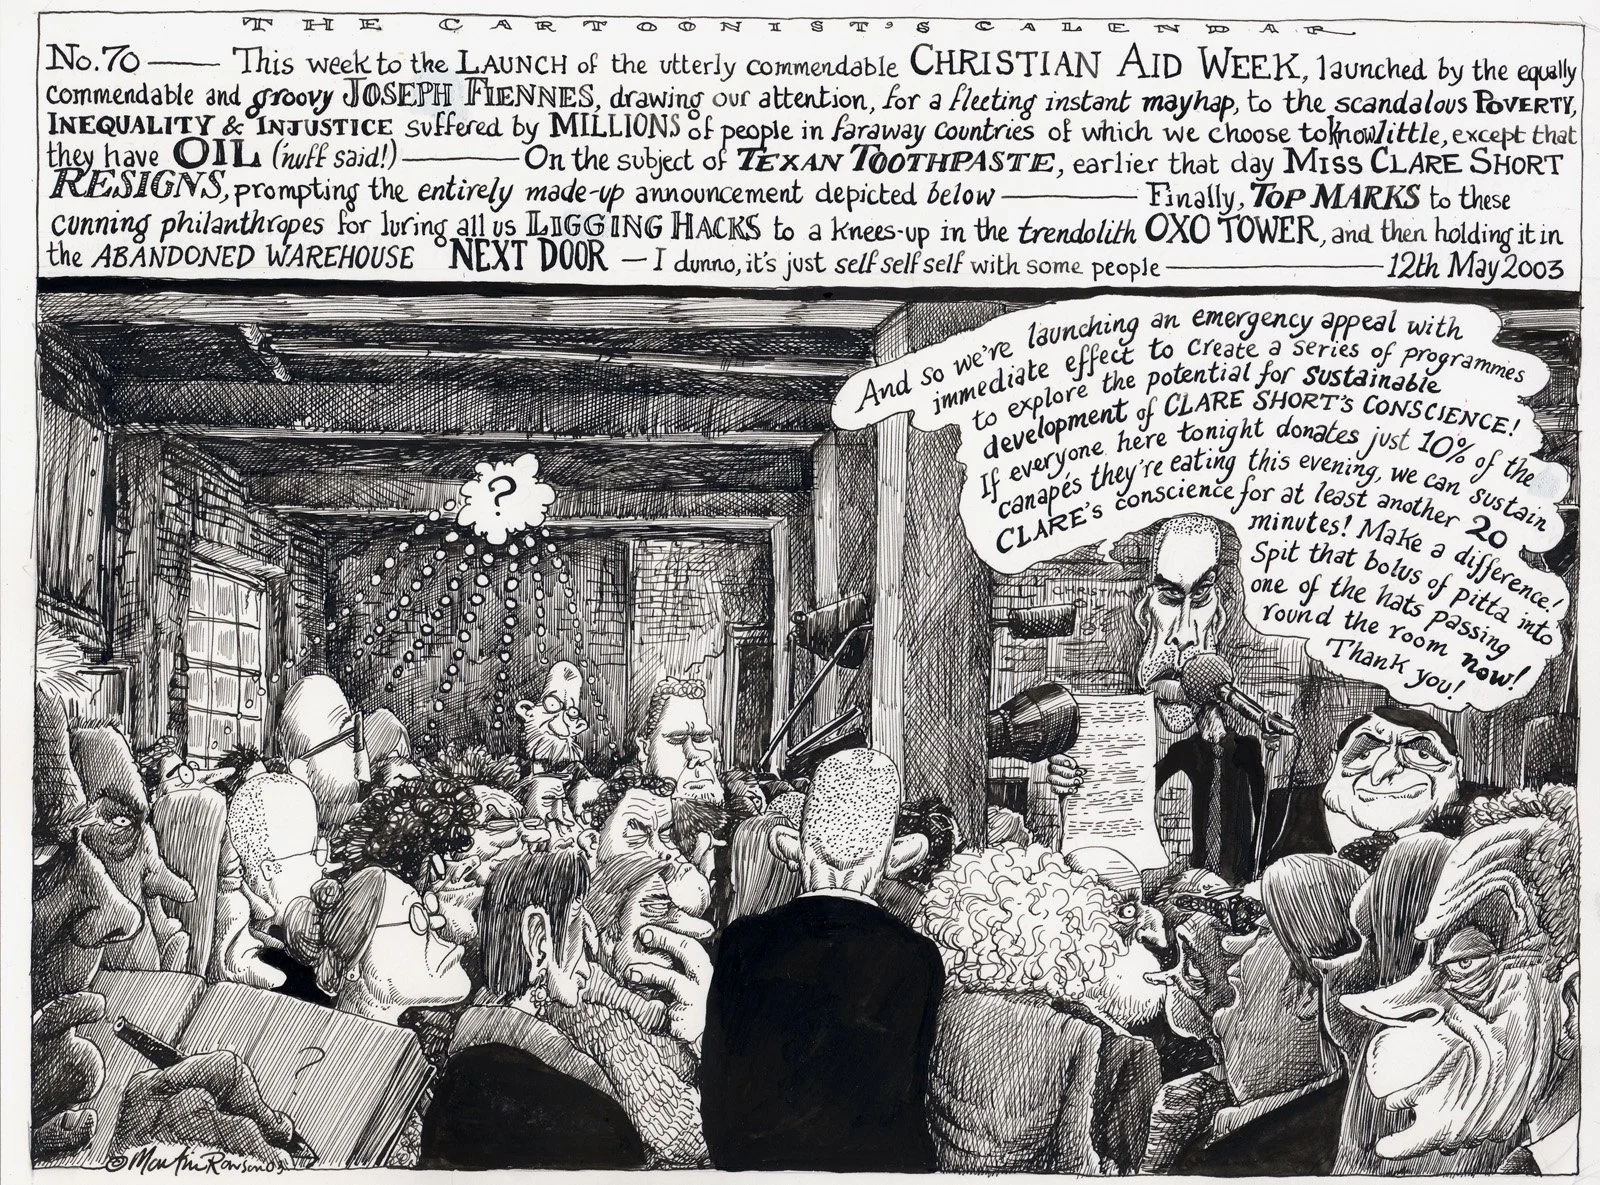 THE CARTOONIST'S CALENDAR
No. 70 — This week to the LAUNCH of the utterly commendable CHRISTIAN AID WEEK, launched by the equally
commendable and groovy JOSEPH FIENNES, drawing our attention, for a fleeting instant mayhap, to the scandalous POVERTY,
INEQUALITY & INJUSTICE suffered by MILLIONS of people in faraway countries of which we choose to know little, except that
they have OIL ('nuff said!) — On the subject of TEXAN TOOTHPASTE, earlier that day MISS CLARE SHORT
RESIGNS, prompting the entirely made-up announcement depicted below — Finally, TOP MARKS to these
cunning philanthropes for luring all us LIGGING HACKS to a knees-up in the trendolith OXO TOWER, and then holding it in
the ABANDONED WAREHOUSE NEXT DOOR — I dunno, it's just self self self with some people — 12th May 2003
And so we're launching an emergency appeal with
immediate effect to create a series of programmes
to explore the potential for sustainable
development of CLARE SHORT'S CONSCIENCE!
If everyone here tonight donates just 10% of the
canapés they're eating this evening, we can sustain
CLARE's conscience for at least another 20
minutes! Make a difference!
Spit that bolus of pitta into
one of the hats passing
round the room now!
Thank you!
?
CHRISTIAN
?
© Martin Rowson 03